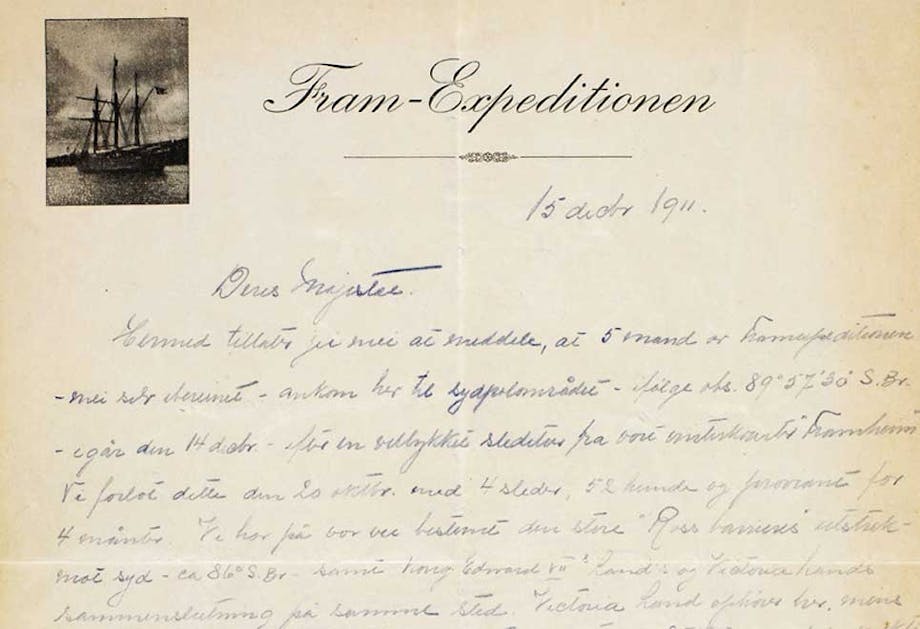 Fram-Expeditionen
15 decbr 1911.
Deres Majestæt.
Hermed tillater jei mei at meddele, at 5 mand av Framexpeditionen
- mei selv iberegnet - ankom her til sydpolområdet - ifølge obs. 89° 57' 30" S.Br.
- igår den 14 decbr. - efter en vellykket sledetur fra vort vinterkvarter "Framheim".
Vi forlot dette den 20 oktbr. med 4 sleder, 52 hunde og proviant for
4 månter. Vi har på vor vei bestemt den store "Ross barrieres" utstræk-
mot syd - ca 86° S.Br - samt Kong Edward VII's Land's og Victoria Lands
sammenslutning på samme sted. Victoria Land ophører her, mens